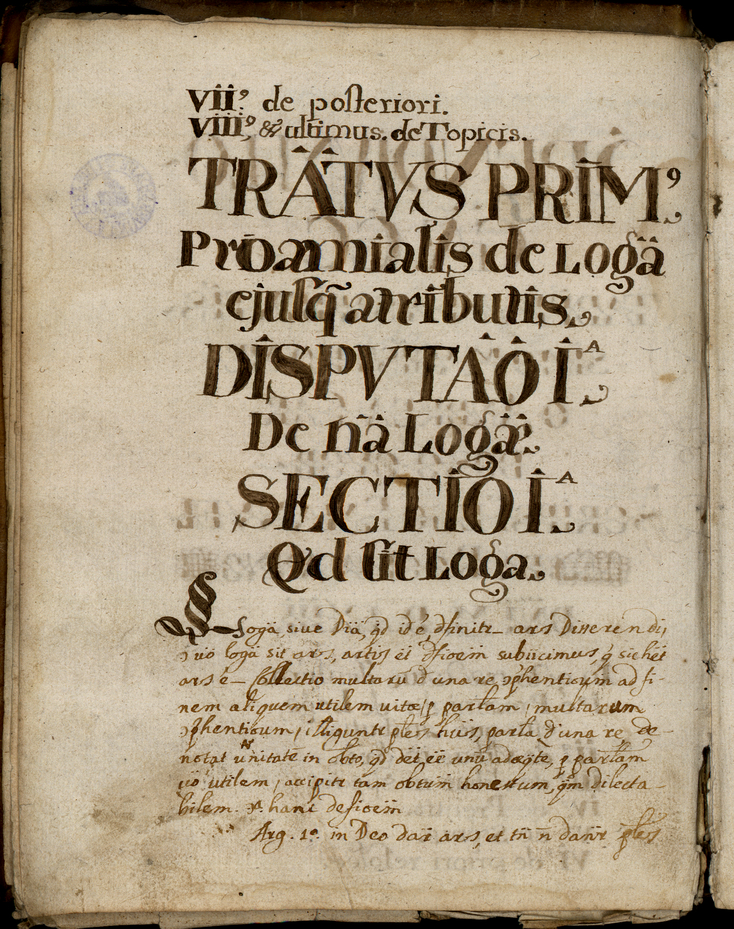 VII.º de posteriori.
VIII.º & ultimus. de Topicis.
TRÂTVS PRIM.º
Proæmialis de Logâ
ejusq̃ attributis.
DISPVTAÔ I.ᴬ
De nâ Logæ.
SECTIO I.ᴬ
Qd sit Loga.
§
Loga, sive Dia, qd id ē, dfinitr ars Disserendi,
ɔ uo loga sit ars, artis ei dfioem subiicimus, q̃ sic hēt
ars ē Collectio multarū d' una re ɔp̃henticum ad fi-
nem aliquem utilem uitæ, p̱ parlam, multarum
ɔp̃henticum, illiguntr ples huis, parla d'una re de-
notat unitatē in obto, qd dēt eē unū adæqte, p̱ parlam
uō utilem, accipitr tam obtum honestum, qm̃ dilecta-
bilem. hanc defioem
Arg. 1º in Deo dar ars, et tn̄ n̄ dantr ples